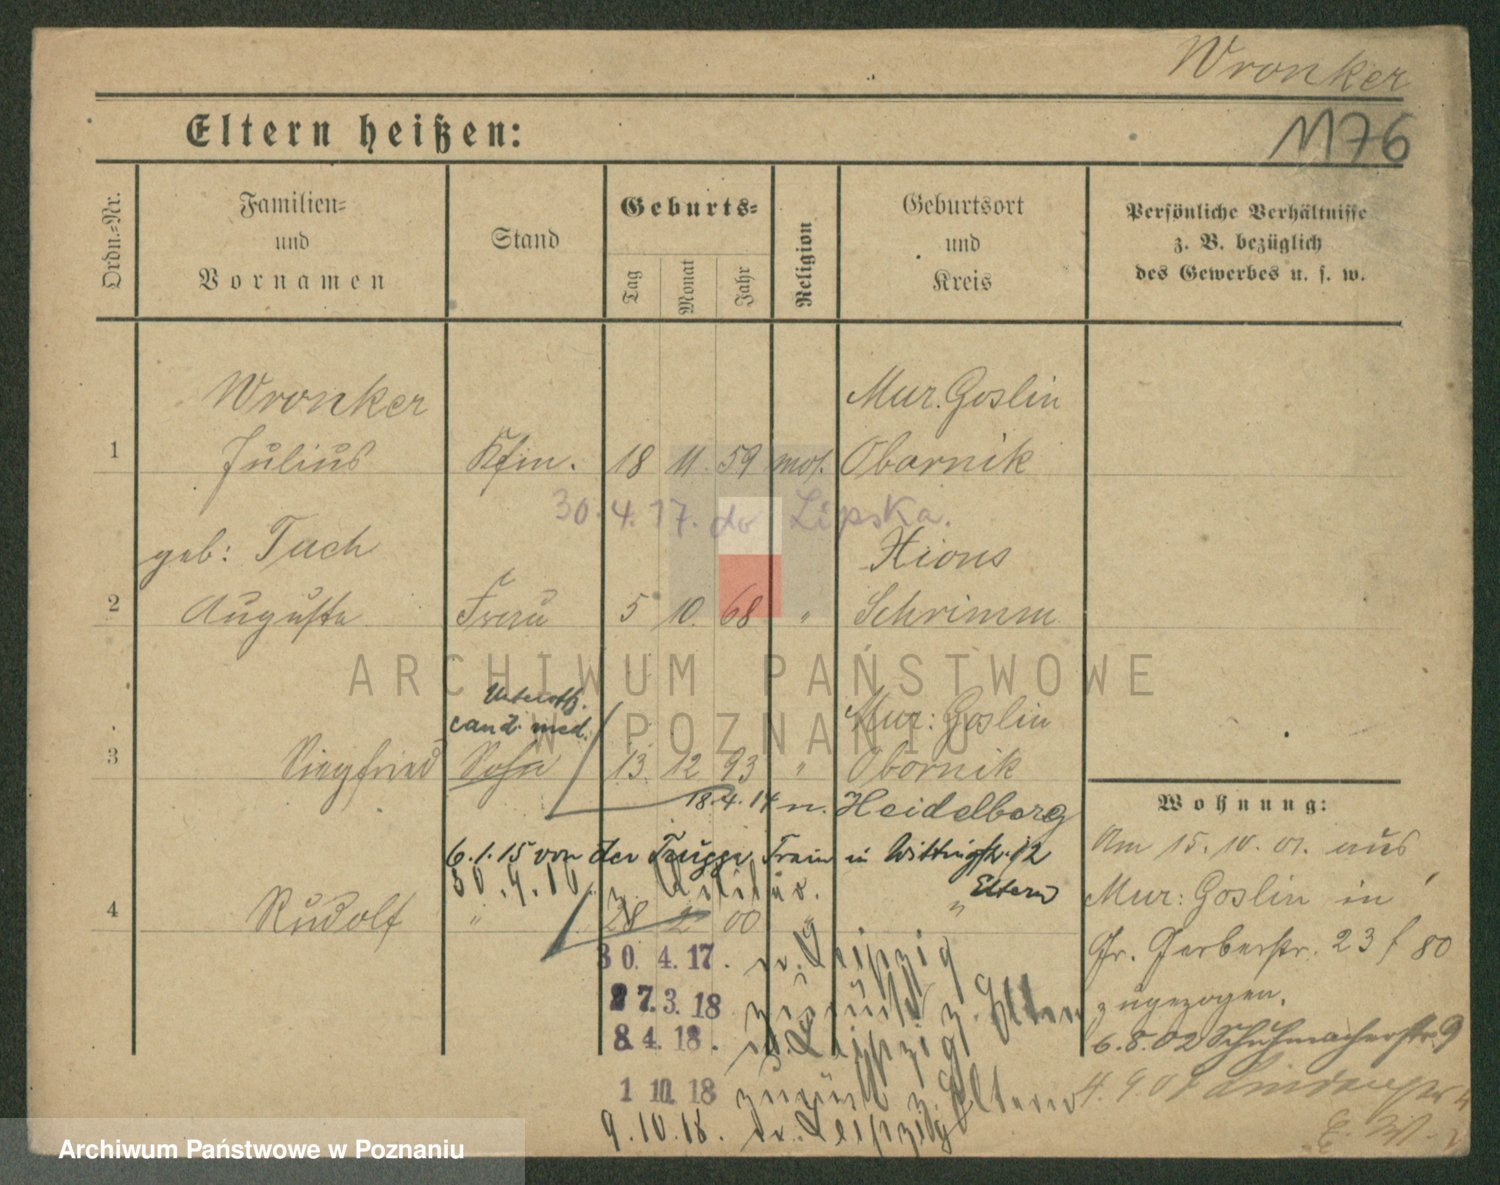 Wronker
1176
Eltern heißen:
Ordn.-Nr.
Familien-
und
Vornamen
Stand
Geburts-
Tag
Monat
Jahr
Religion
Geburtsort
und
Kreis
Persönliche Verhältnisse
z. B. bezüglich
des Gewerbes u. s. w.
Wronker Mur. Goslin
1 Julius Kfm. 18 11. 59 mos. Obornik
30. 4. 17. do Lipska.
geb: Tuch Xions
2 Auguste Frau 5 10. 68 " Schrimm
ARCHIWUM PAŃSTWOWE
W POZNANIU
cand. med. Mur: Goslin
3 Siegfried Sohn 13. 12 93 " Obornik
18.4.14 n. Heidelberg
6.1.15 von der Train in 12
Eltern
4 Rudolf " 28 2 00 " "
30. 4. 17. n. Leipzig
27. 3. 18 zurück z. Eltern
8. 4. 18. n. Leipzig
1 10. 18 zurück z. Eltern
9. 10. 18. n. Leipzig
Wohnung:
Am 15. 10. 01. aus
Mur: Goslin in
Gr. Gerberstr. 23 / 80
zugezogen.
6. 8. 02 Schuhmacherstr. 9
E. W.
Archiwum Państwowe w Poznaniu